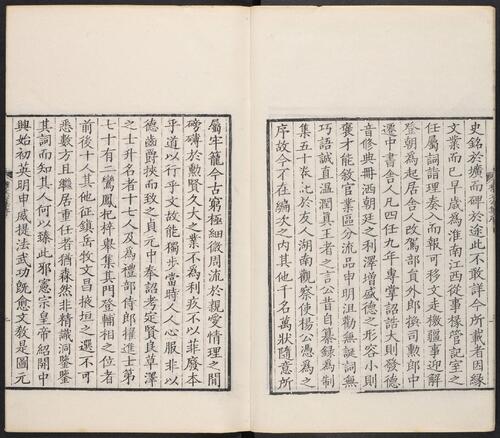 史銘於壙而碑於途此不敢詳今所載者因緣
文業而已早歲為淮南江西從事掾管記室之
任屬詞詣理奏入而報可移文走檄疆事迎解
登朝為起居舍人改駕部員外郎換司勲郎中
遷中書舍人凡四任九年專掌詔誥大則發德
音修典冊洒朝廷之利澤增盛德之形容小則
褒才能敘官業區分流品申明沮勸無誕詞無
巧語誠直温潤真王者之言公昔自纂錄為制
集五十卷託於友人湖南觀察使楊公憑為之
序故今不在編次之內其他千名萬狀隨意所
屬牢籠今古窮極細微周流於親愛情理之間
磅礴於勲賢久大之業不為利疚不以菲廢本
乎道以行乎文故能獨步當時人人心服非以
德齒爵挾而致之貞元中奉詔考定賢良草澤
之士升名者十七人及為禮部侍郎擢進士第
七十有二鸞鳳杞梓舉集其門登輔相之位者
前後十人其他征鎮岳牧文昌掖垣之選不可
悉數方且繼居重任者猶森然非精識洞鑒
其詞而知其人何以臻此邪憲宗皇帝紹開中
興始初英明申威提法武功既愈文教是圖元